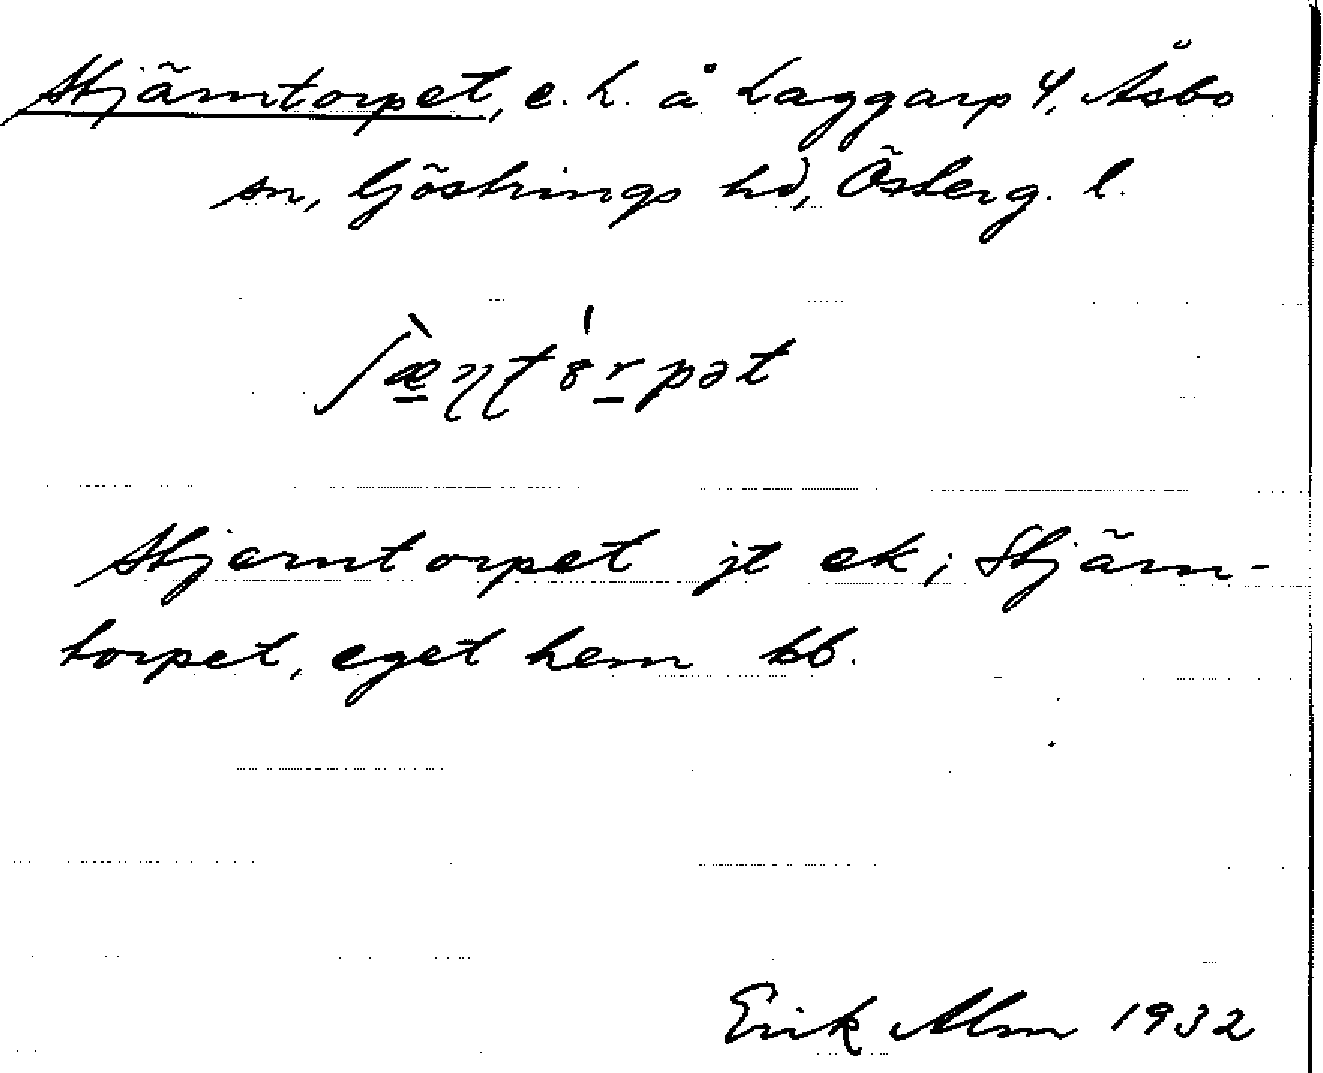 Stjärntorpet, e. h. å Laggarp 4, Åsbo
sn, Göstrings hd, Österg. l.
ʃæ̀ηt8́rpət
Stjerntorpet jt ek; Stjärn-
torpet, eget hem kb.
Erik Alm 1932